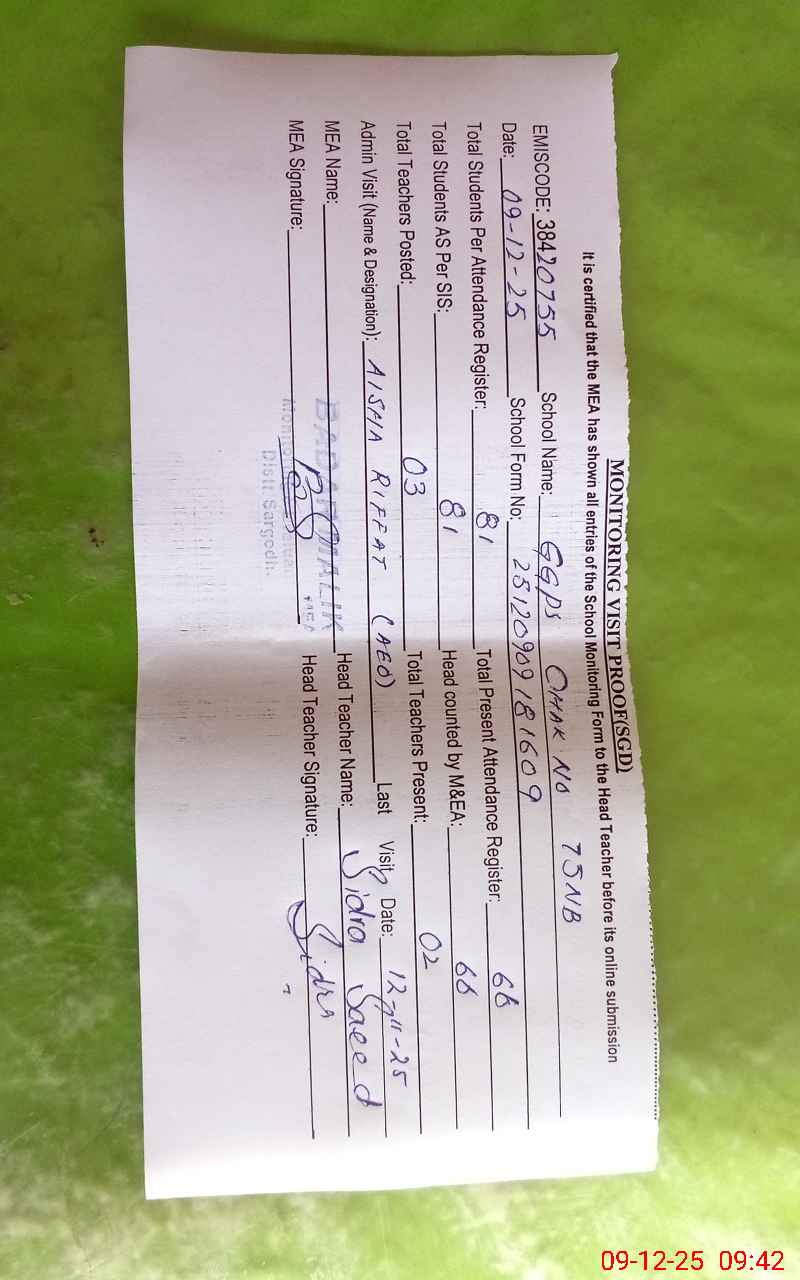 MONITORING VISIT PROOF(SGD)
It is certified that the MEA has shown all entries of the School Monitoring Form to the Head Teacher before its online submission
EMISCODE: 38420755 School Name: GGPS CHAK NO 75NB
Date: 09-12-25 School Form No: 25120909181609
Total Students Per Attendance Register: 81 Total Present Attendance Register: 66
Total Students AS Per SIS: 81 Head counted by M&EA: 66
Total Teachers Posted: 03 Total Teachers Present: 02
Admin Visit (Name & Designation): AISHA RIFFAT (AEO) Last Visit Date: 12-11-25
MEA Name: MALIK Head Teacher Name: Sidra Saeed
MEA Signature: Head Teacher Signature: Sidra
Distt Sargodh
09-12-25 09:42